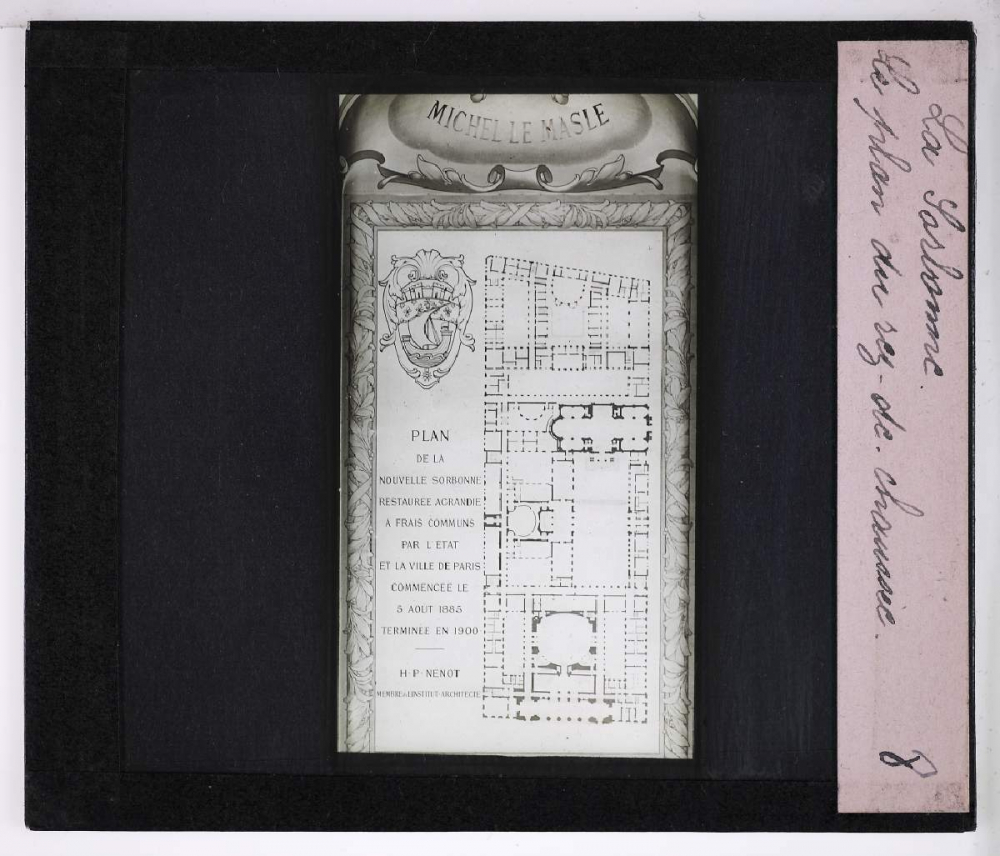 MICHEL LE MASLE
PLAN
DE LA
NOUVELLE SORBONNE
RESTAUREE AGRANDIE
A FRAIS COMMUNS
PAR L'ETAT
ET LA VILLE DE PARIS
COMMENCEE LE
5 AOUT 1885
TERMINEE EN 1900
H·P·NENOT
MEMBRE DE L'INSTITUT·ARCHITECTE
La Sorbonne.
Le plan du rez-de-chaussée.
8